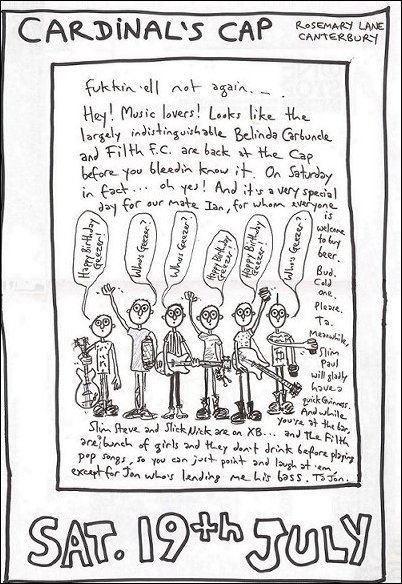 CARDINAL'S CAP
ROSEMARY LANE
CANTERBURY
fukkin 'ell not again...
Hey! Music lovers! Looks like the
largely indistinguishable Belinda Carbuncle
and Filth F.C. are back at the Cap
before you bleedin know it. On Saturday
in fact... oh yes! And it's a very special
day for our mate Ian, for whom everyone
is
welcome
to buy
beer.
Bud.
Cold
one.
Please.
Ta.
Meanwhile,
Slim
Paul
will gladly
have a
quick Guinness.
And while
you're at the bar,
Happy Birthday
Geezer!
Who's Geezer?
Who's Geezer?
Happy Birthday
Geezer!
Happy Birthday
Geezer!
Who's Geezer?
Slim Steve and Slick Nick are on XB... and the Filth
are a bunch of girls and they don't drink before playing
pop songs, so you can just point and laugh at 'em
except for Jon who's lending me his bass. Ta Jon.
SAT. 19th JULY